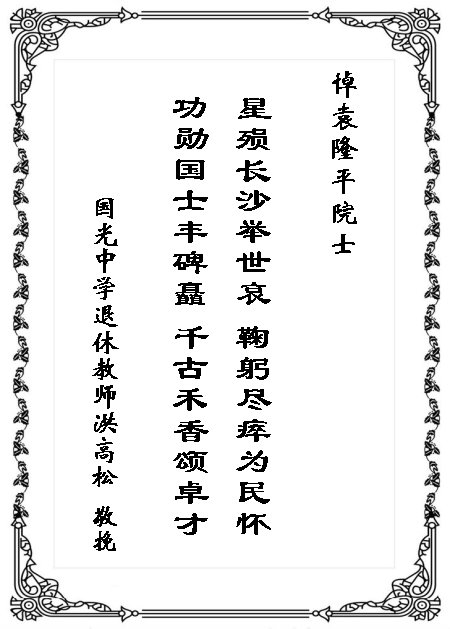 悼袁隆平院士
星殒长沙举世哀 鞠躬尽瘁为民怀
功勋国士丰碑矗 千古禾香颂卓才
国光中学退休教师洪高松 敬挽